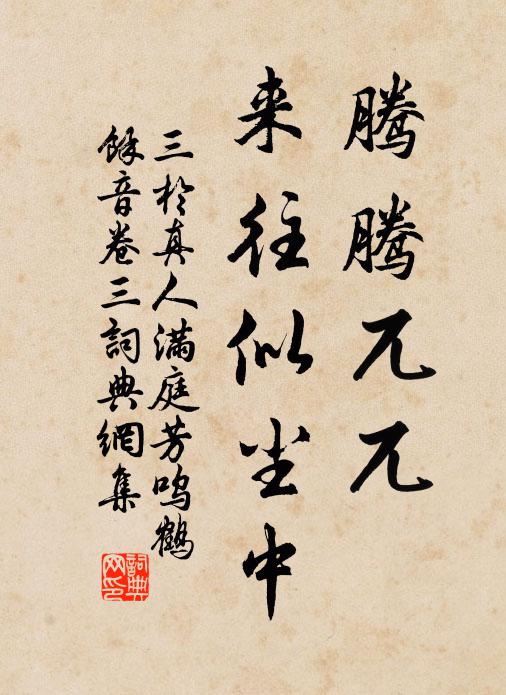 腾腾兀兀
来往似坐中
三於真人满庭芳鸣鹤
馀音卷三詞典網集
詞典网印